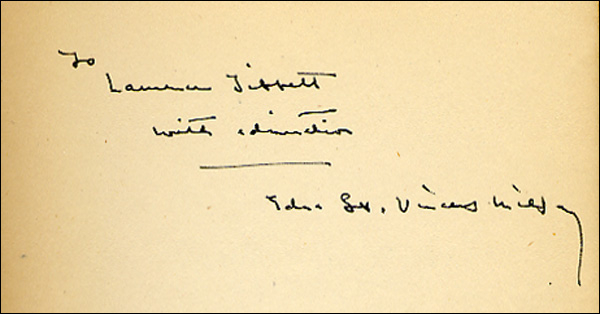 To
Lawrence Tibbett
with admiration
Edna St. Vincent Millay